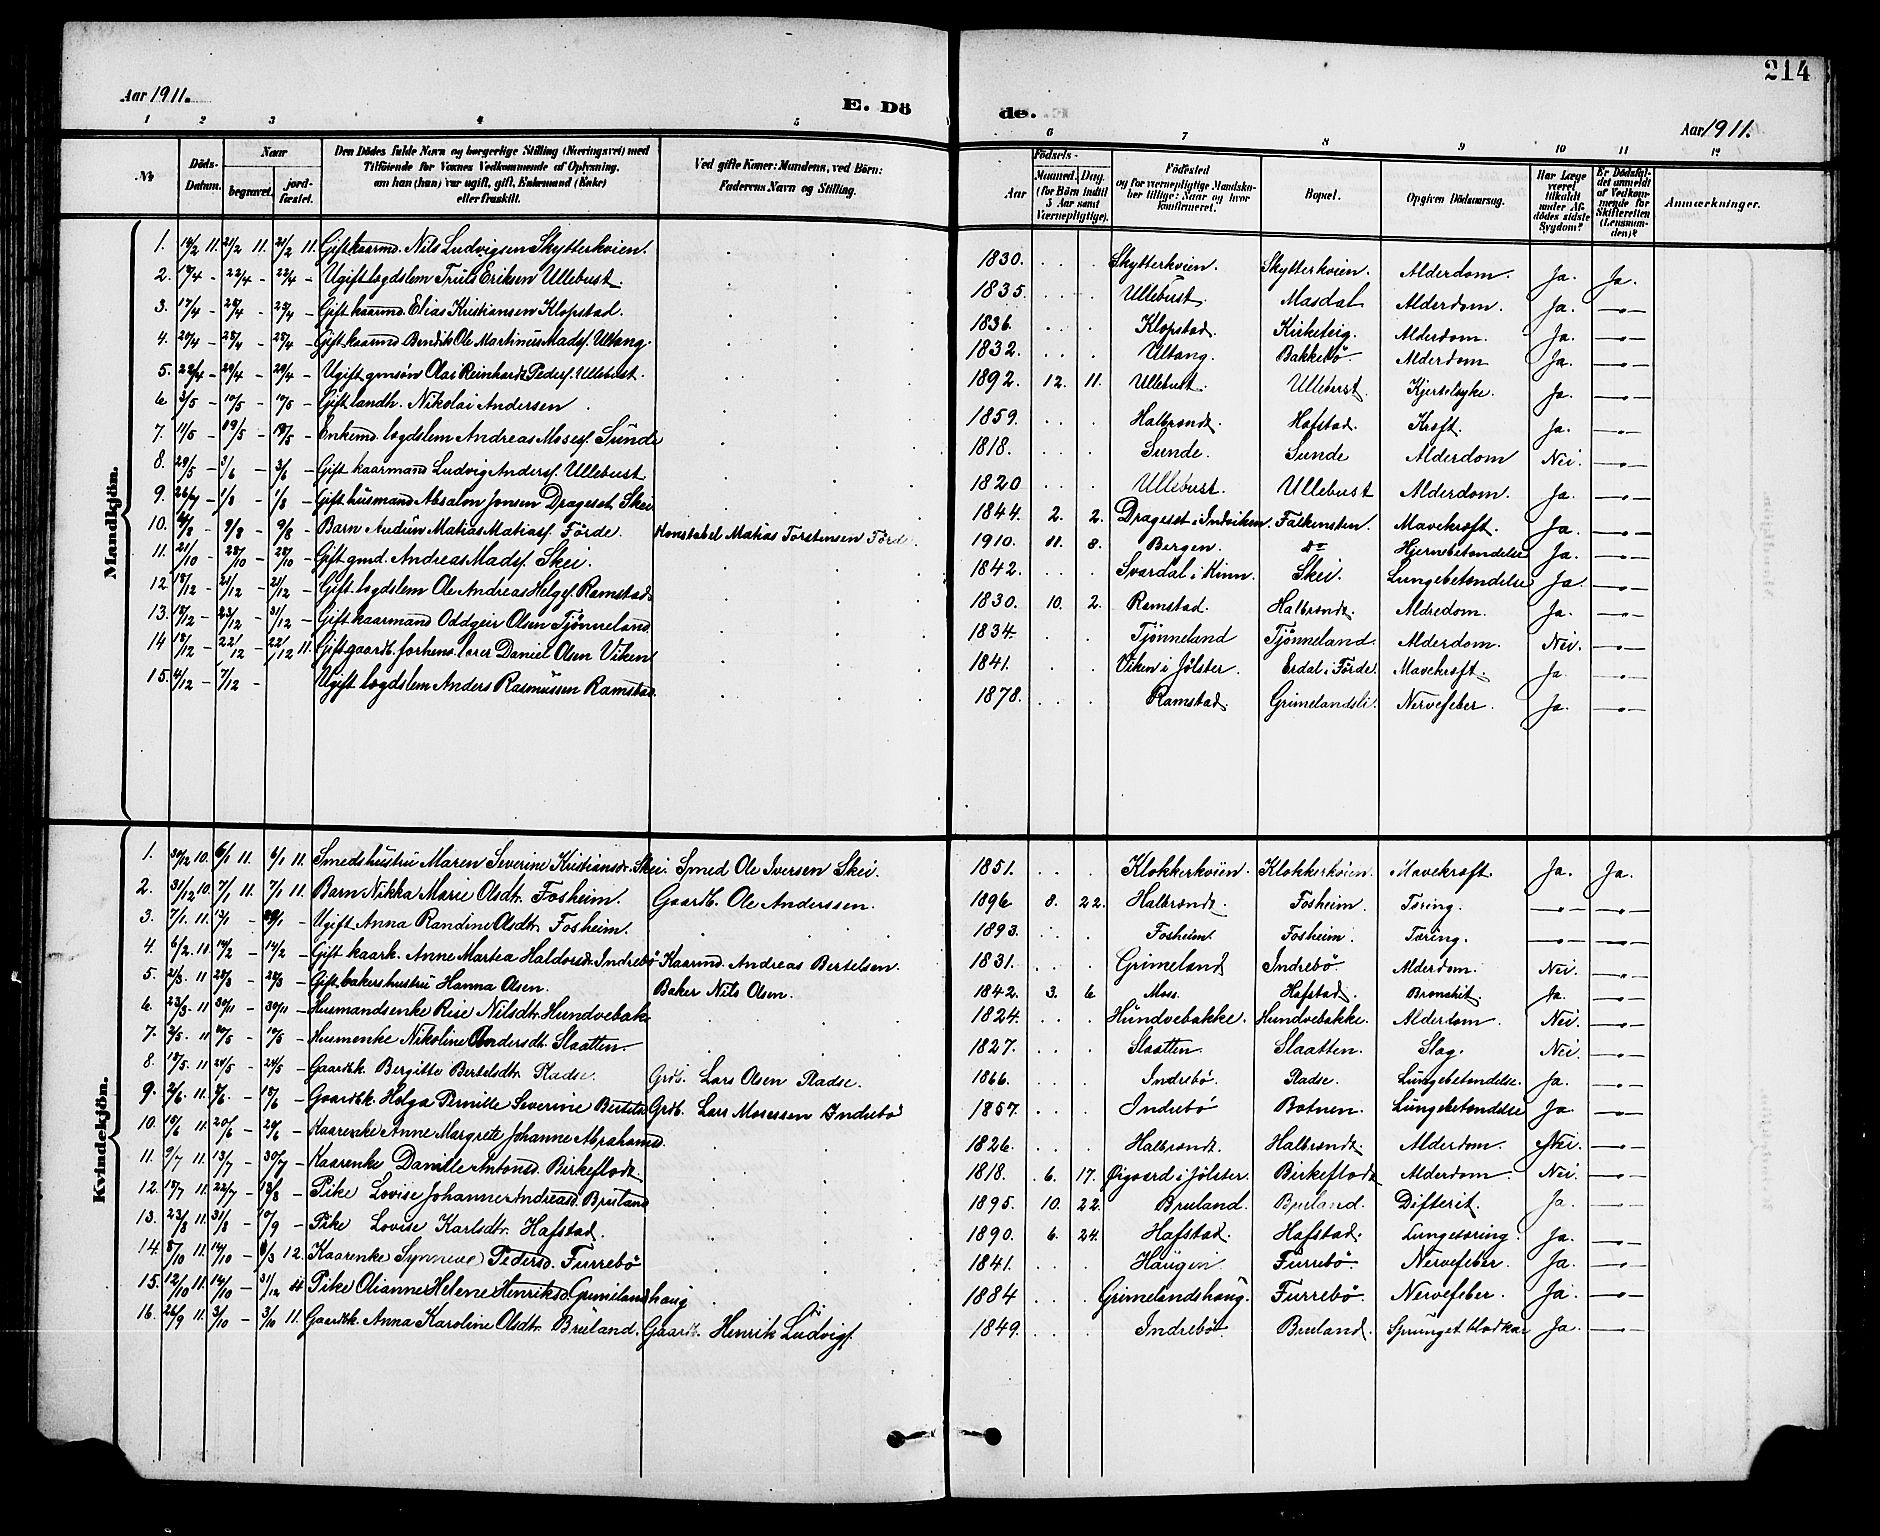 214
Aar 1911.
E. Dö
de.
Aar 1911.
1 2 3 4 5 6 7 8 9 10 11 12
No
Döds-Datum.
Naar
begravet.
jord-fæstet.
Den Dödes fulde Navn og borgerlige Stilling (Næringsvei) med
Tilföiende for Voxnes Vedkommende af Oplysning,
om han (hun) var ugift, gift, Enkemand (Enke)
eller fraskilt.
Ved gifte Koner: Mandens, ved Börn:
Faderens Navn og Stilling.
Födsels-
Aar
Maaned. Dag.
(for Börn indtil
5 Aar samt
Værnepligtige).
Födested
og for værnepligtige Mandska-
ber tillige: Naar og hvor
konfirmeret.
Bopæl.
Opgiven Dödsaarsag.
Har Læge
været
tilkaldt
under Af-
dödes sidste
Sygdom?
Er Dödsfal-
det anmeldt
af Vedkom-
mende for
Skifteretten
(Lensman-
den)?
Anmærkninger.
Mandkjön.
1. 14/2 11. 21/2 11. 21/2 11. Gift kaarmd. Nils Ludvigsen Skytterhoien. 1830. Skytterhoien. Skytterhoien. Alderdom. Ja. Ja.
2. 17/4 - 22/4 - 22/4 - Ugift lægdslem Truls Eriksen Ullebust. 1835. Ullebust. Masdal Alderdom. Ja. -"-
3. 17/4 - 28/4 - 28/4 - Gift kaarmd. Elias Kristiansen Klopstad. 1836. Klopstad. Kirketeig. Alderdom. Ja. -"-
4. 20/4 - 28/4 - 28/4 - Gift kaarmd Bendik Ole Martinus Madsf. Ultang. 1832. Ultang. Bakkebö Alderdom Ja -"-
5. 22/4 - 29/4 - 29/4 - Ugift gmsøn Olai Reinhardt Pedersf. Ullebust. 1892. 12. 11. Ullebust. Ullebust. Kjertelsyke. Ja. -"-
6 3/5 - 10/5 - 10/5 - Gift landh. Nikolai Andersen. 1859. Halbrendt. Hafstad. Kræft. Ja. -"-
7. 11/5 - 19/5 - 19/5 - Enkemd. lægdslem Andreas Mosesf. Sunde 1818. Sunde. Sunde Alderdom Nei. -"-
8. 29/5 - 3/6 - 3/6 - Gift kaarmand Ludvig Andersf. Ullebust 1820 Ullebust. Ullebust Alderdom. Ja. -"-
9. 26/7 - 1/8 - 1/8 - Gift husmand Absalon Jonsen Drageset Skei 1844. 2. 2. Drageset i Indviken. Falkensten. Mavekræft. Ja. -"-
10. 4/8 - 9/8 - 9/8 - Barn Audun Matias Matiasf. Förde. Konstabel Matias Torstensen Förde. 1910. 11. 8. Bergen. do Hjernebetændelse Ja. -"-
11. 21/10 - 28/10 - 28/10 - Gift gmd. Andreas Madsf. Skei. 1842. Svardal i Kinn. Skei. Lungebetændelse Ja. -"-
12 13/12 - 21/12 - 21/12 - Gift lægdslem Ole Andreas Helgesf. Ramstad. 1830. 10. 2. Ramstad. Halbrendt. Aldredom. Ja. -"-
13. 17/12 - 23/12 - 31/12 - Gift kaarmand Oddgeir Olsen Tjönneland. 1834. Tjönneland Tjönneland. Alderdom. Nei. -"-
14 13/12 - 22/12 - 22/12 11. Gift gaardb. forhens. lærer Daniel Olsen Viken 1841. Viken i Jölster. Erdal i Förde. Mavekræft. Ja -"-
15. 4/12 - 7/12 - Ugift lægdslem Anders Rasmussen Ramstad. 1878. Ramstad. Grimelandsli. Nervefeber. Ja. -"-
Kvindekjön.
1. 30/12 10. 6/1 11. 6/1 11. Smedshustru Maren Severine Kristiansdr. Skei. Smed Ole Iversen Skei. 1851. Klokkerhoien. Klokkerhoien. Mavekræft. Ja. Ja.
2. 31/12 10. 7/1 11. 7/1 11. Barn Nikka Marie Olsdtr. Fosheim. Gaardb. Ole Anderssen. 1896 8. 22. Halbrendt. Fosheim. Tæring. -"- -"-
3. 7/1 11. 13/1 - 29/1 - Ugift Anna Randine Olsdtr. Fosheim. 1893. Fosheim. Fosheim. Tæring. -"- -"-
4. 6/2 11 14/2 - 14/2 - Gift kaark. Anne Martea Haldorsd. Indrebö Kaarmd. Andreas Bertelsen. 1831. Grimeland Indrebö. Alderdom. Nei. -"-
5. 21/3. 11 28/3 - 28/3 - Gift bakershustru Hanna Olsen. Baker Nils Olsen. 1842. 3. 6 Moss. Hafstad. Bronchit. Ja. -"-
6. 23/3. 11 Husmandsenke Rise Nilsdtr. Hundvebakk 1824. Hundvebakke. Hundvebakke. Alderdom. Nei. -"-
7. 2/5. 11 10/5 - 10/5 - Husmenke Nikoline Andersdt. Slaatten. 1827. Slaatten. Slaatten. Slag. Nei. -"-
8. 18/5. 11 24/5 - 24/5 - Gaardbk. Bergitte Bertelsdtr. Stadse. Grdb. Lars Olsen Stadse. 1866. Indrebö. Stadse. Lungebetændelse. Ja. -"-
9. 2/6. 11. - Gaardbk. Helga Pernille Severine Bertelsd Grdb. Lars Mosessen Indrebö 1857. Indrebö Botnen. Lungebetændelse Ja -"-
10. 15/6 11. 20/6 - 20/6 - Kaarenke Anne Margrete Johanne Abrahamsd. 1826. Halbrendt. Halbrendt. Alderdom. Nei. -"-
11. 9/7 11. 13/7 - 30/7 - Kaarenke Danille Antonsd. Birkeflodt. 1818. 6. 17. Örgaard i Jölster. Birkeflodt Alderdom. Nei. -"-
12. 18/7 11. 22/7 - 13/8 - Pike Lovise Johanne Andreasd. Bruland 1895. 10. 22. Bruland. Bruland. Difterit. Ja. -"-
13. 23/8 11. 31/8 - 10/9 - Pike Lovise Karlsdtr. Hafstad. 1890. 6. 24. Hafstad. Hafstad. Lungetæring. Ja. -"-
14. 8/10 11. 14/10 - 8/3 12. Kaarenke Synneve Pedersd. Furrebö 1841. Haugen Furrebö. Nervefeber. Ja. -"-
15. 12/10 11. 14/10 - 31/12 11 Pike Olianne Helene Henriksd. Grimelandhaug 1884 Grimelandshaug. Furrebö. Nervefeber. Ja. -"-
16. 26/9 11. 3/10 - 3/10 11. Gaardbk. Anna Karoline Olsdtr. Bruland. Gaardb. Henrik Ludvigf. 1849. Indrebö Bruland. Sprunget blodkar Ja. -"-